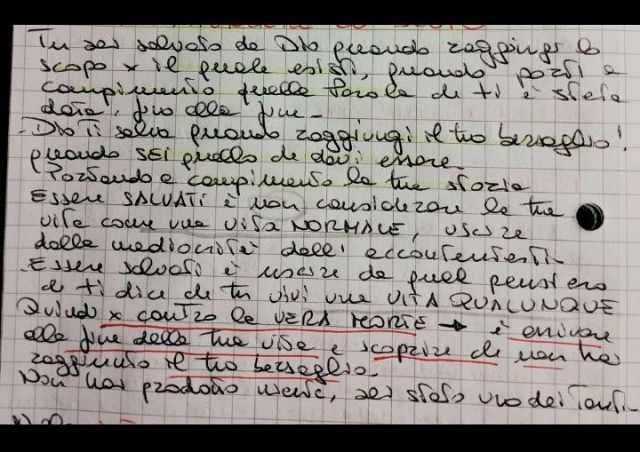 Tu sei salvato da Dio quando raggiungi lo
scopo x il quale esisti, quando porti a
compimento quella Parola che ti è stata
data, fino alla fine.
Dio ti salva quando raggiungi il tuo bersaglio!
quando SEI quello che devi essere
Portando a compimento la tua storia
Essere SALVATI è non considerare la tua
vita come una vita NORMALE, uscire
dalla mediocrità dell'accontentarti.
Essere salvati è uscire da quel pensiero
che ti dice che tu vivi una VITA QUALUNQUE
Quindi x contro la VERA MORTE → è arrivare
alla fine della tua vita e scoprire che non hai
raggiunto il tuo bersaglio.
Non hai prodotto niente, sei stato uno dei tanti.